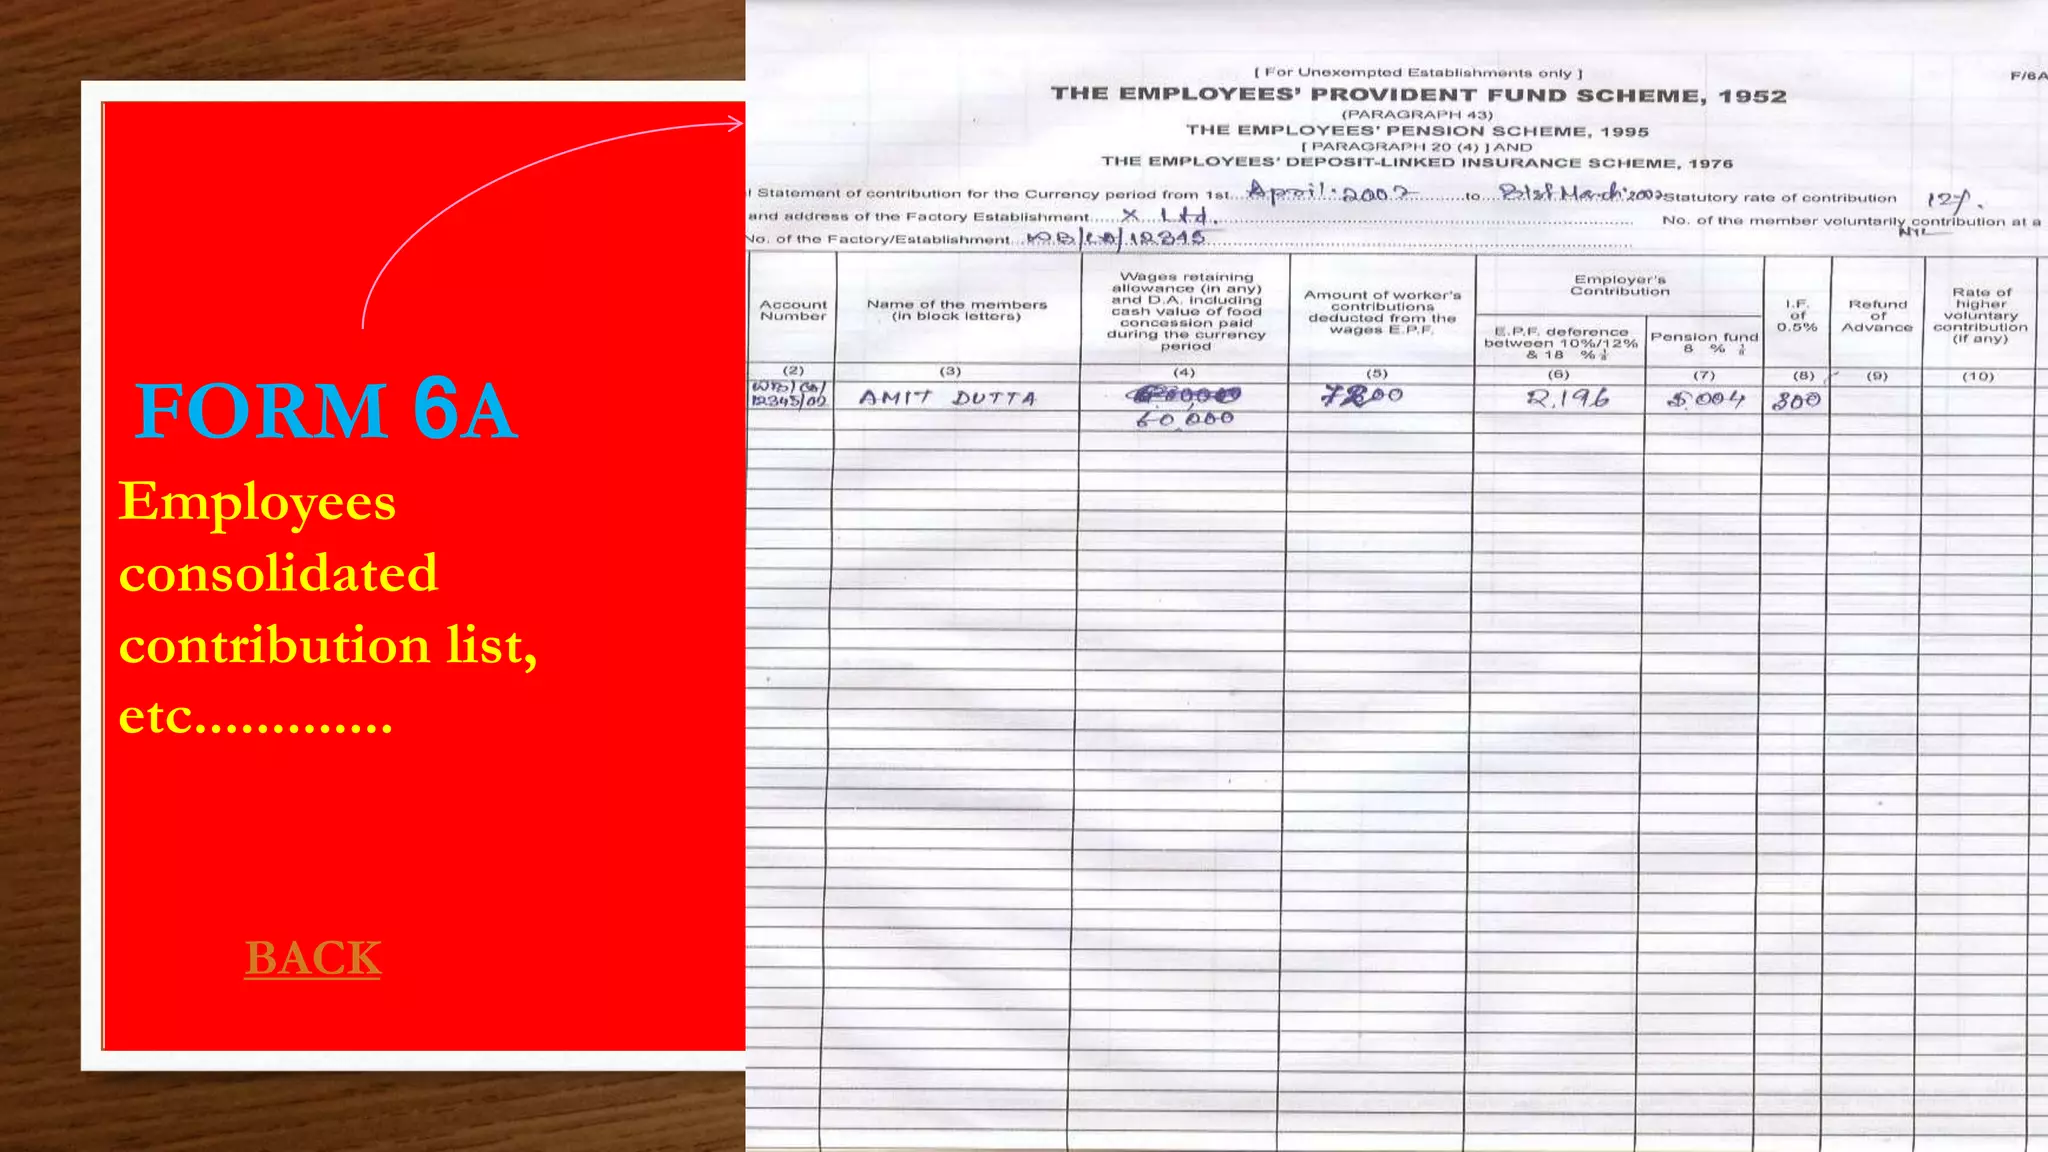 FORM 6A
Employees
consolidated
contribution list,
etc.............
BACK
[ For Unexempted Establishments only ]
F/6A
THE EMPLOYEES' PROVIDENT FUND SCHEME, 1952
(PARAGRAPH 43)
THE EMPLOYEES' PENSION SCHEME, 1995
[ PARAGRAPH 20 (4) ] AND
THE EMPLOYEES' DEPOSIT-LINKED INSURANCE SCHEME, 1976
l Statement of contribution for the Currency period from 1st April. 2002 to 31st March Statutory rate of contribution 12%.
and address of the Factory Establishment X Ltd. No. of the member voluntarily contribution at a
NIL
No. of the Factory/Establishment WB/CA/12345
Account
Number
Name of the members
(in block letters)
Wages retaining
allowance (in any)
and D.A. including
cash value of food
concession paid
during the currency
period
Amount of worker's
contributions
deducted from the
wages E.P.F.
Employer's
Contribution
E.P.F. deference
between 10%/12%
& 18 %
Pension fund
8 %
I.F.
of
0.5%
Refund
of
Advance
Rate of
higher
voluntary
contribution
(if any)
(2) (3) (4) (5) (6) (7) (8) (9) (10)
WB/CA/
12345/02
AMIT DUTTA
60,000
7200
2,196
5,004
300